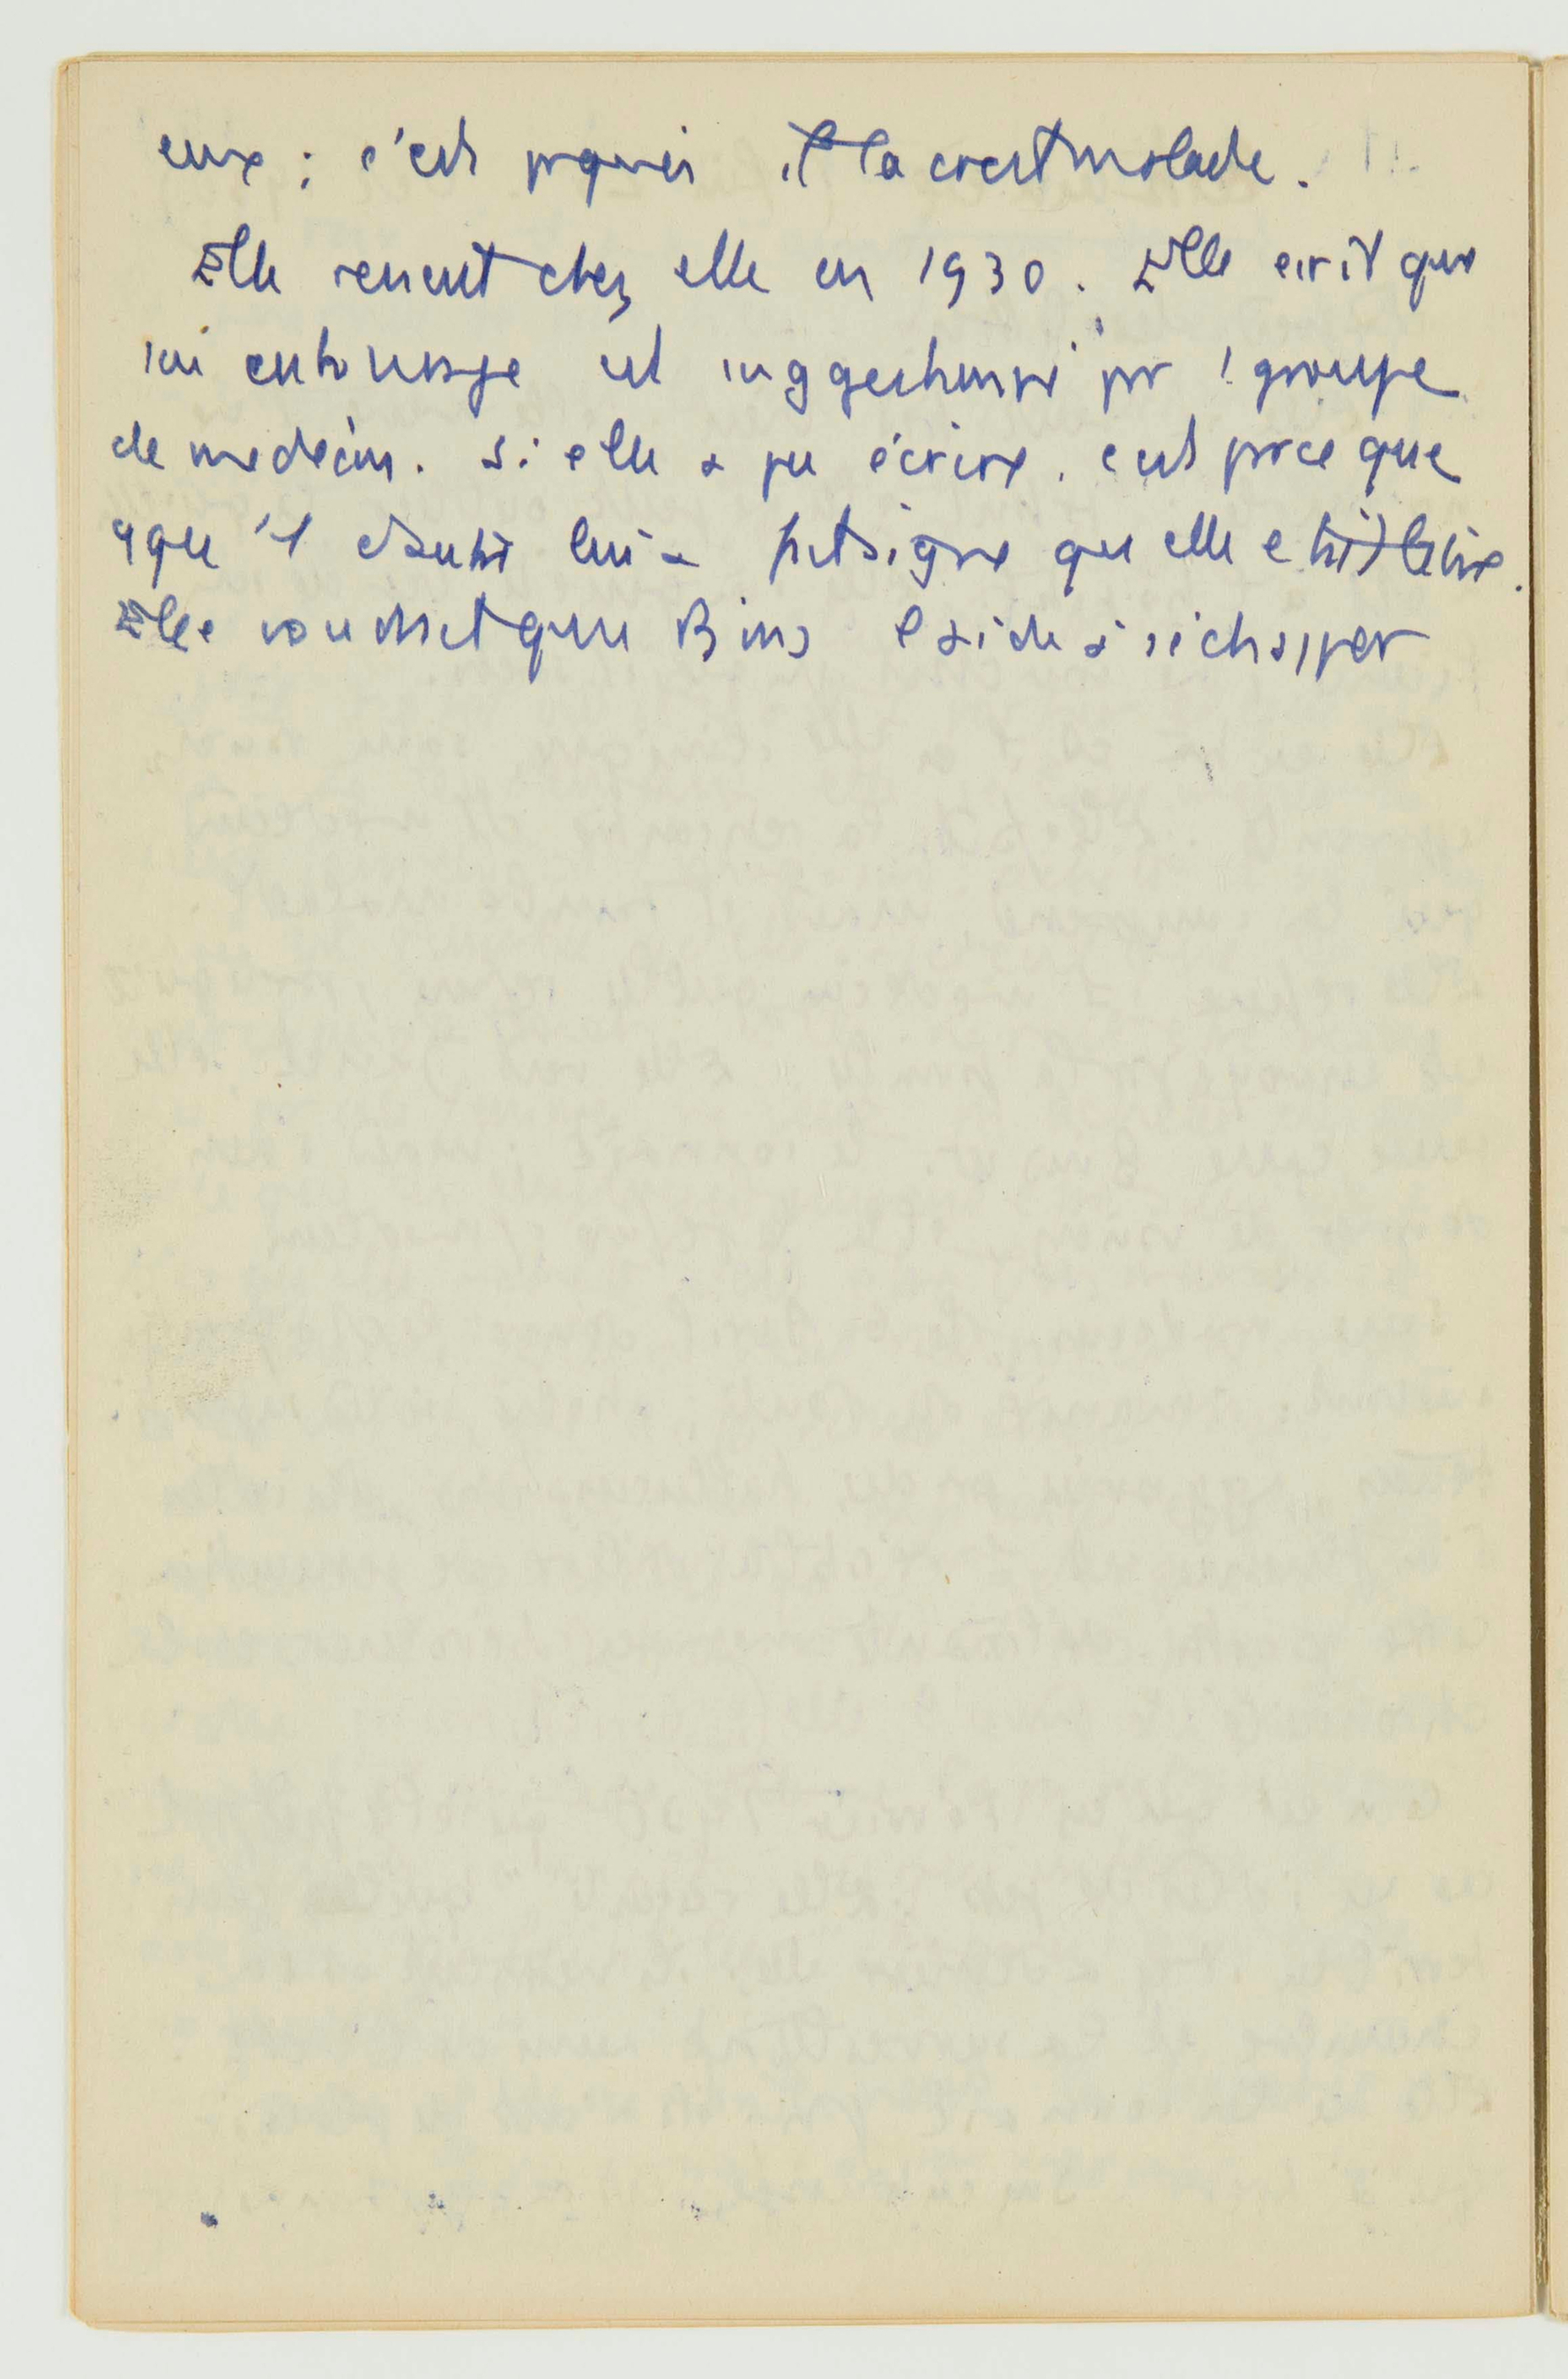 eux ; c'est pquoi il la croit malade.
Elle revient chez elle en 1930. Elle écrit que
son entourage est suggestionné par 1 groupe
de médecins. Si elle a pu écrire, c'est parce que
lui a fait signe qu elle était libre.
Elle voudrait que Bins l aide à s'échapper